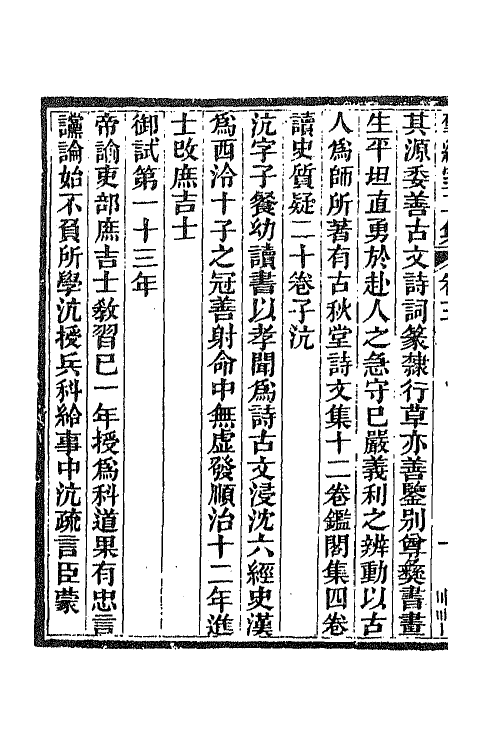 其源委善古文詩詞篆隸行草亦善鑒別尊彝書畫
生平坦直勇於赴人之急守已嚴義利之辨動以古
人為師所著有古秋堂詩文集十二卷鑑閣集四卷
讀史質疑二十卷子沆
沆字子餐幼讀書以孝聞為詩古文浸沈六經史漢
為西泠十子之冠善射命中無虛發順治十二年進
士改庶吉士
御試第一十三年
帝諭吏部庶吉士敎習已一年授為科道果有忠言
讜論始不負所學沆授兵科給事中沆疏言臣蒙